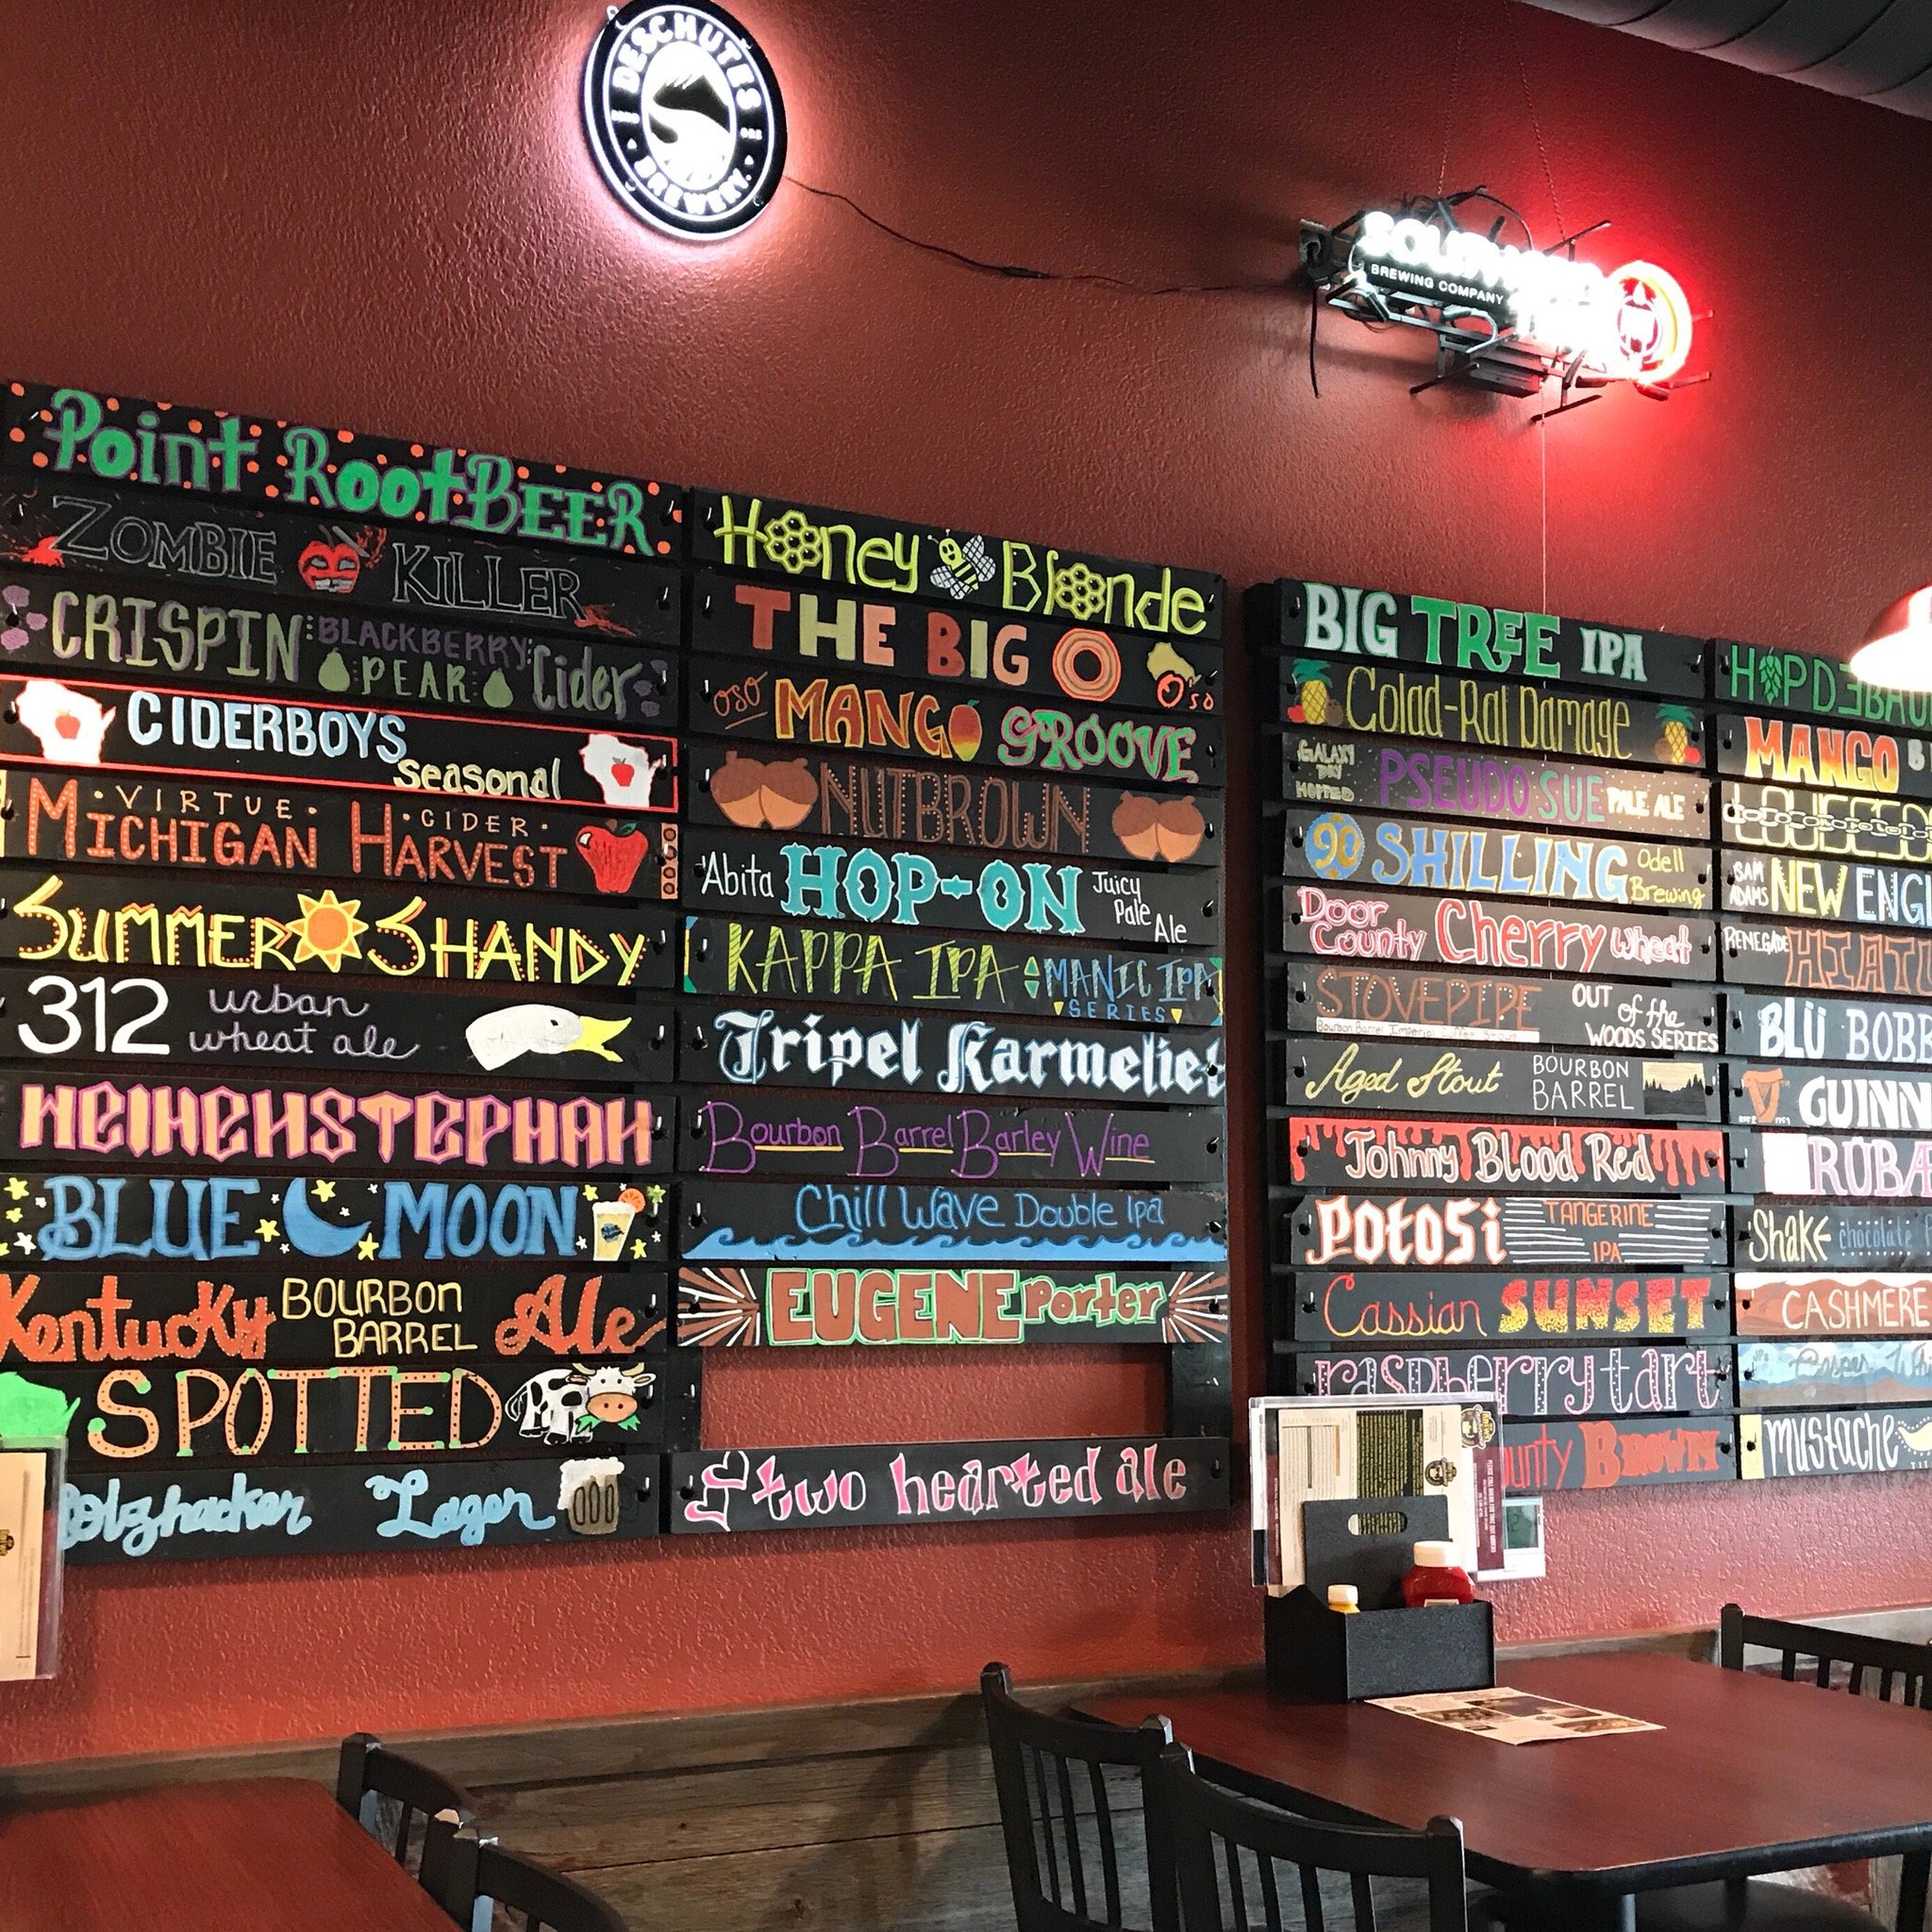 DESCHUTES
BREWERY
BREWING COMPANY
Point RootBEER
ZOMBIE KILLER
CRISPIN BLACKBERRY PEAR Cider
CIDERBOYS
seasonal
VIRTUE CIDER
MICHIGAN HARVEST
SUMMER SHANDY
312 urban
wheat ale
WEIHENSTEPHAN
BLUE MOON
Kentucky BOURBON BARREL Ale
SPOTTED
Lager
Honey Blonde
THE BIG O O'so
OSO MANGO GROOVE
NUTBROWN
Abita HOP-ON Juicy Pale Ale
KAPPA IPA MANIC IPA
SERIES
Tripel Karmeliet
Bourbon Barrel Barley Wine
Chill Wave Double Ipa
EUGENE Porter
two hearted ale
BIG TREE IPA
Colad-Ral Damage
GALAXY DRY HOPPED PSEUDO SUE PALE ALE
90 SHILLING Odell Brewing
Door County Cherry Wheat
STOVEPIPE OUT of the WOODS SERIES
Aged Stout BOURBON BARREL
Johnny Blood Red
POtOSi TANGERINE
IPA
Cassian SUNSET
raspberry tart
unty BROWN
HOPDEBAU
MANGO
SAM ADAMS NEW ENG
RENEGADE HIATU
BLÜ BOBB
GUINN
RUBA
Shake chocolate
CASHMERE
Mustache